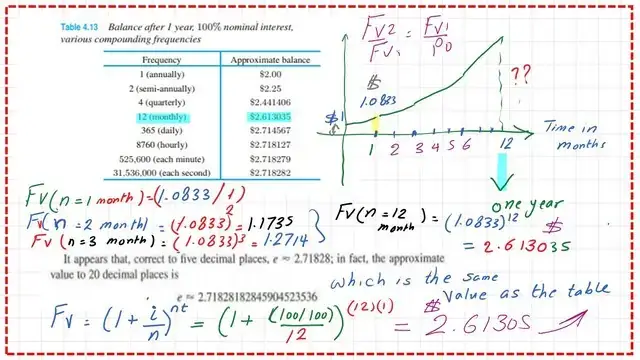 Table 4.13 Balance after 1 year, 100% nominal interest,
various compounding frequencies
Frequency Approximate balance
1 (annually) $2.00
2 (semi-annually) $2.25
4 (quarterly) $2.441406
12 (monthly) $2.613035
365 (daily) $2.714567
8760 (hourly) $2.718127
525,600 (each minute) $2.718279
31,536,000 (each second) $2.718282
Fv2/Fv1 = Fv1/P0
$
1.0833
$1
??
1 2 3 4 5 6 12
Time in
months
one year
Fv(n=1 month)=(1.0833/1)
Fv(n=2 month)=(1.0833)²=1.1735
Fv(n=3 month)=(1.0833)³=1.2714
Fv(n=12 month)=(1.0833)^12
$
= 2.613035
It appears that, correct to five decimal places, e ≈ 2.71828; in fact, the approximate
value to 20 decimal places is
e ≈ 2.71828182845904523536
which is the same
value as the table
Fv = (1 + i/n)^nt = (1 + (100/100)/12)^(12)(1) = $2.61305